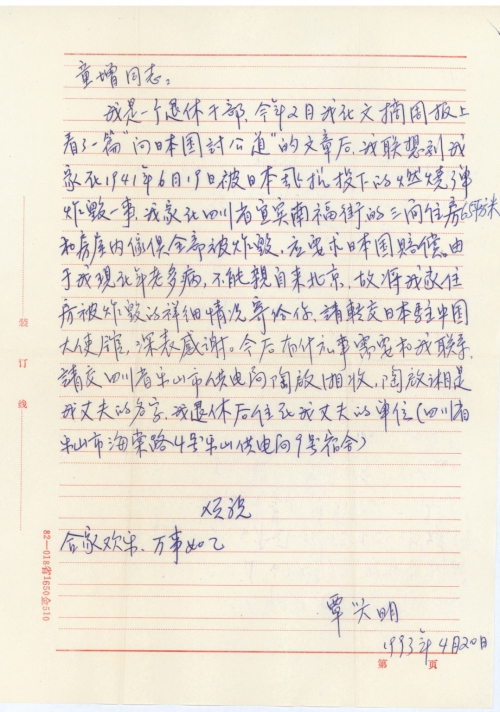 童增同志：
我是一个退休干部，今年2月我在文摘周报上
看了一篇“问日本国討公道”的文章后，我联想到我
家在1941年6月19日被日本飞机投下的燃烧弹
炸毁一事，我家在四川省宜宾南福街的三间住房65平方米
和房屋内傢俱全部被炸毁，应要求日本国賠偿。由
于我现在年老多病，不能親自来北京，故将我家住
所被炸毁的祥细情况寄给你，請転交日本駐中国
大使馆，深表感谢。今后有什么事需要和我联系，
請交四川省乐山市供电局陶放湘收，陶放湘是
我丈夫的名字，我退休后住在我丈夫的单位（四川省
乐山市海棠路4号乐山供电局9号宿舍）
顺祝
合家欢乐、万事如乙
覃兴明
1993年4月20日
第 页
装订线
82—018省1650全510